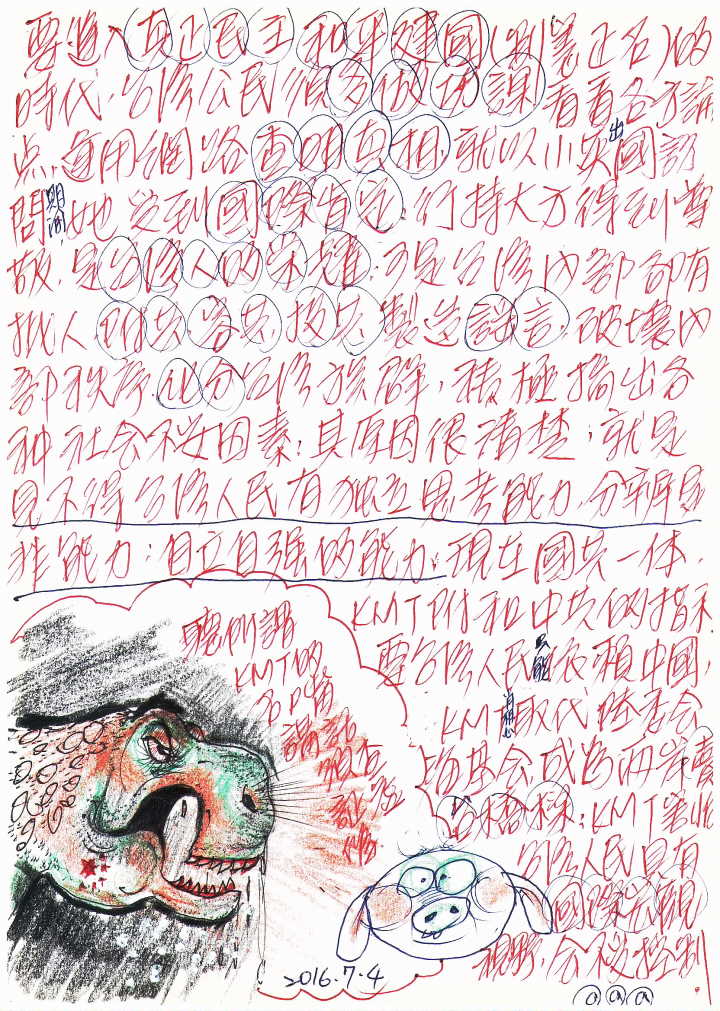 要進入真正民主和平建國(制憲正名)的
時代,台灣公民須多做功課,看看各方論
點,運用網路查明真相,就以小英出國訪
問,她受到國際肯定,行持大方得到尊
敬,是台灣人的榮耀;可是台灣內部卻有
批人附共容共投共製造謠言,破壞內
部秩序,化分台灣族群,積極搞出各
種社會不安因素;其原因很清楚;就是
見不得台灣人民有獨立思考能力,分辨是
非能力;自立自强的能力;現在國共一体,
KMT附和中共的指
要台灣人民只能依賴中國,
KMT取代陸委會
海基會,成為兩岸
橋樑;KMT害
台灣人民具有
國際宏觀
視野,會不受控制
聽所謂
KMT的
名
2016.7.4